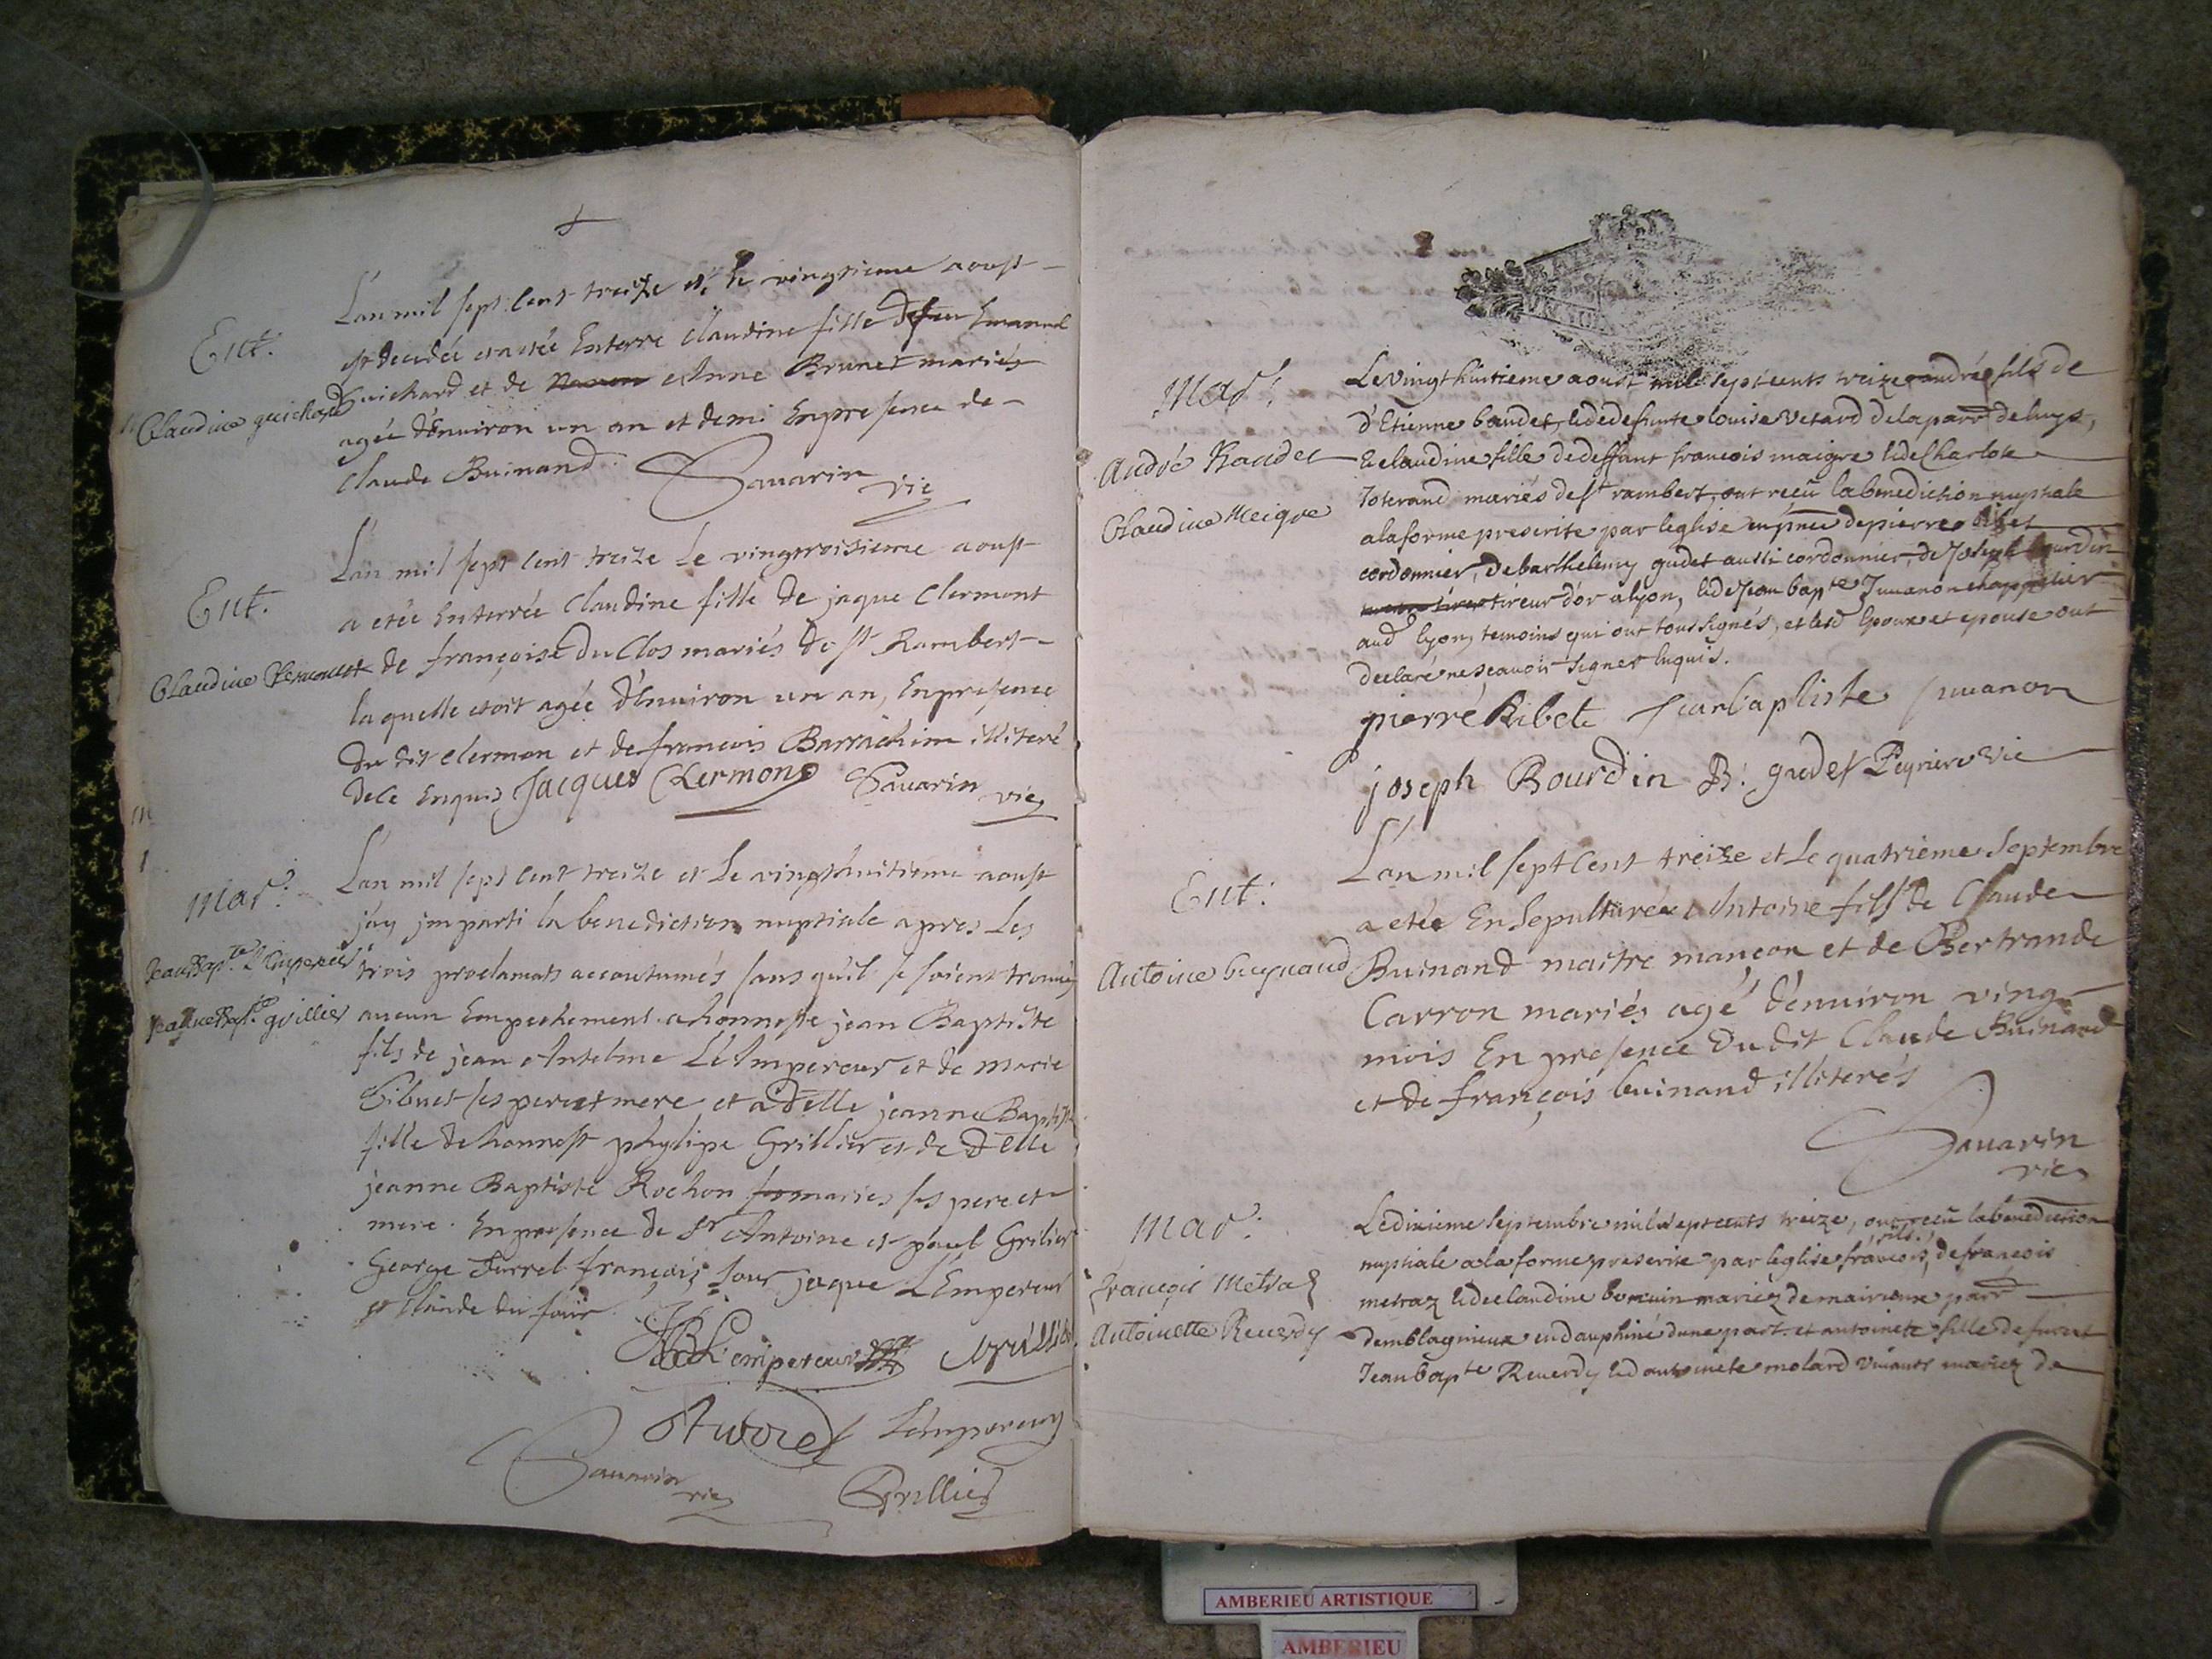 Ent.
Claudine guichard
L'an mil sept cent treize et le vingtieme aoust
est decedée et a etée Enterre Claudine fille de feu Emanuel
Guichard et de Anne Brunet mariés
agée d'Enuiron un an et demi En presence de
Claude Buinand. Sauarin
vic
Ent.
Claudine
L'an mil sept cent treize Le vingtroisieme aoust
a etée Enterrée Claudine fille de jaque Clermont
de françoise Du Clos mariés de st Rambert
laquelle etoit agée d'Enuiron un an, En presence
du dit Clermon et de francois Barrachin illiteré
de ce Enquis Jacques Clermont Sauarin
vic
Mar.
Jean Bapte L'Empereur
Jeanne Bapte grillier
L'an mil sept cent treize et Le vingthuitieme aoust
j'ay jmparti la benediction nuptiale apres Les
trois proclamats accoutumés sans qu'il se soient trouués
aucun Empechement a honneste jean Baptiste
fils de jean Antelme L'Ampereur et de marie
Tibuet ses pere et mere et a Delle jeanne Baptiste
fille de honnest phylipe Grillier et de Delle
jeanne Baptiste Rochon mariés ses pere et
mere. En presence de Sr Antoine et paul Grilier
George françois jaque L'Empereur
et Claude du
JB L'empereur Grillier
L'empereur
Sauarin
vic
Grillier
Mar.
André Baudet
Claudine Meigre
Le vingt huitieme aoust mil sept cents treize andré fils de
d'Etienne baudet, & de defunte louise Vetard de la parr de luys,
& claudine fille de deffunt francois maigre & de Charlote
Toterand mariés de st rambert, ont recû la benediction nuptiale
a la forme prescrite par leglise en pnce de pierre ribet
cordonnier, de barthelemy gudet aussi cordonnier, de Joseph bourdin
tireur d'or a lyon, & de Jean bapte Juuanon chappelier
aud lyon, temoins qui ont tous signés, et lesd Epoux et epouse ont
declaré ne scauoir signer enquis.
pierre Ribet Jean baptiste Juuanon
joseph Bourdin B. gudet Peyriere vic
Ent.
Antoine buynand
L'an mil sept cent treize et Le quatrieme Septembre
a etée En sepulturée Antoine fils de Claude
Buinand maitre mançon et de Bertrande
Carron mariés agé d'enuiron vingt
mois En presence Du dit Claude Buinand
et de françois buinand illiterés
Sauarin
vic
Mar.
françois Metraz
Antoinette Reuerdy
Le dixieme septembre mil sept cents treize, ont recû la benediction
nuptiale a la forme prescrite par leglise francois, fils de francois
metraz & de claudine mariez de parr
demblagnieux en dauphiné d'une part et antoinete fille de feu
Jean bapte Reuerdy & d antoinete molard viuants mariez de
AMBERIEU ARTISTIQUE
AMBERIEU